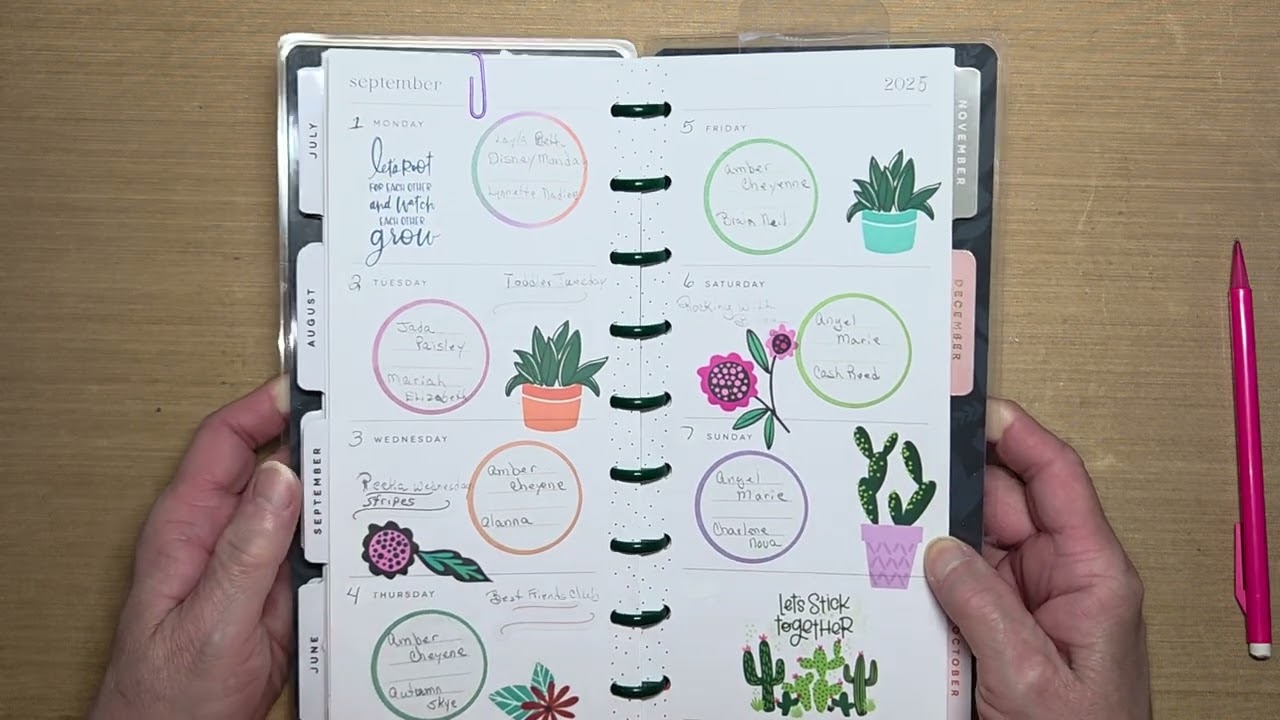 september
2025
1 MONDAY
let's root
FOR EACH OTHER
and watch
EACH OTHER
grow
Layla Beth
Disney Monday
Lynnette Nadine
2 TUESDAY
Toddler Tuesday
Jada
Paisley
Mariah
Elizabeth
3 WEDNESDAY
Wednesday
Stripes
amber
Cheyene
alanna
4 THURSDAY
Best Friends Club
Amber
Cheyene
autumn
skye
5 FRIDAY
amber
Cheyenne
Brain Neil
6 SATURDAY
Rocking with
angel
Marie
Cash Reed
7 SUNDAY
Angel
Marie
Charlene
Nova
let's stick
together
JULY
AUGUST
SEPTEMBER
JUNE
NOVEMBER
DECEMBER
OCTOBER